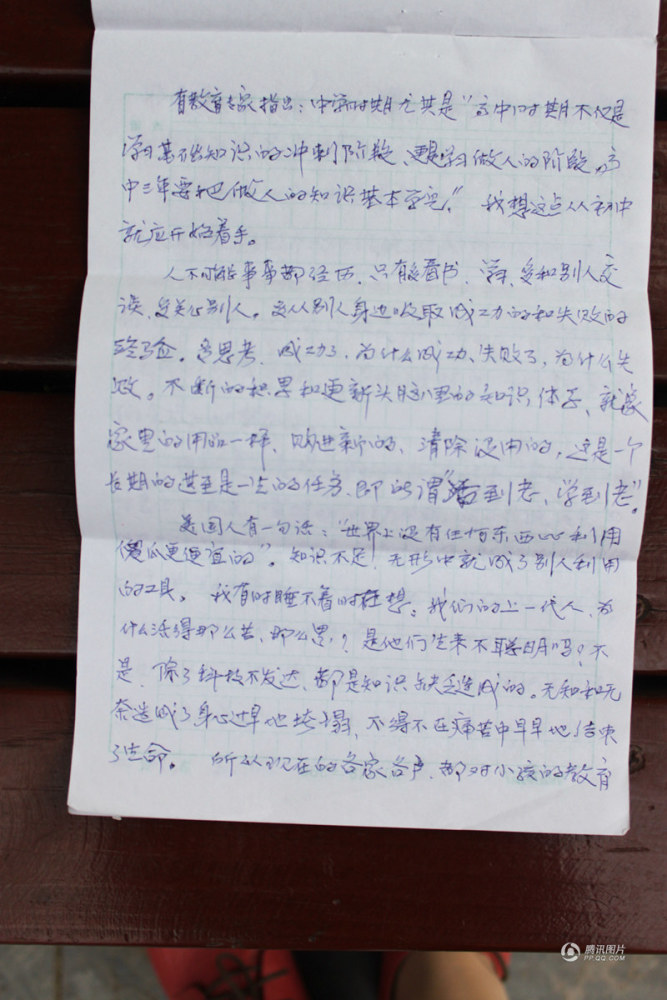 有教育专家指出：中学时期尤其是“高中时期不仅是
学习基础知识的冲刺阶段，更是学习做人的阶段。高
中三年要把做人的知识基本学完。”我想这点从初中
就应开始着手。
人不可能事事都经历，只有多看书、学习、多和别人交
谈，多关心别人。多从别人身边吸取成功的和失败的
经验。多思考，成功了，为什么成功、失败了，为什么失
败。不断的积累和更新头脑里的知识体系，就像
家里的用品一样，购进新的、清除没用的，这是一个
长期的甚至是一生的任务，即所谓“活到老，学到老”。
美国人有一句话：“世界上没有什么东西比利用
傻瓜更便宜的”。知识不足，无形中就成了别人利用
的工具。我有时睡不着时在想：我们的上一代人，为
什么活得那么苦，那么累？是他们生来不聪明吗？不
是，除了科技不发达，都是知识缺乏造成的。无知和无
奈造成了身心过早地垮塌，不得不在痛苦中早早地结束
了生命。所以现在的各家各户，都对小孩的教育
腾讯图片
PP.QQ.COM